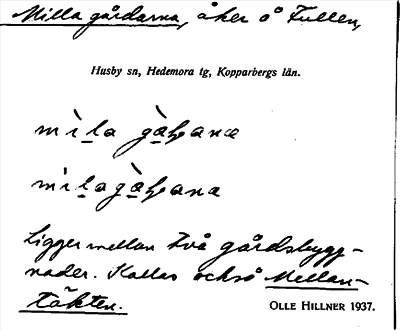 Milla gårdarna, åker å Fullen,
Husby sn, Hedemora tg, Kopparbergs län.
mìla gàꜧana
mìlagàꜧana
Ligger mellan två gårdsbygg-
nader. Kallas också Mellan-
täkten.
OLLE HILLNER 1937.